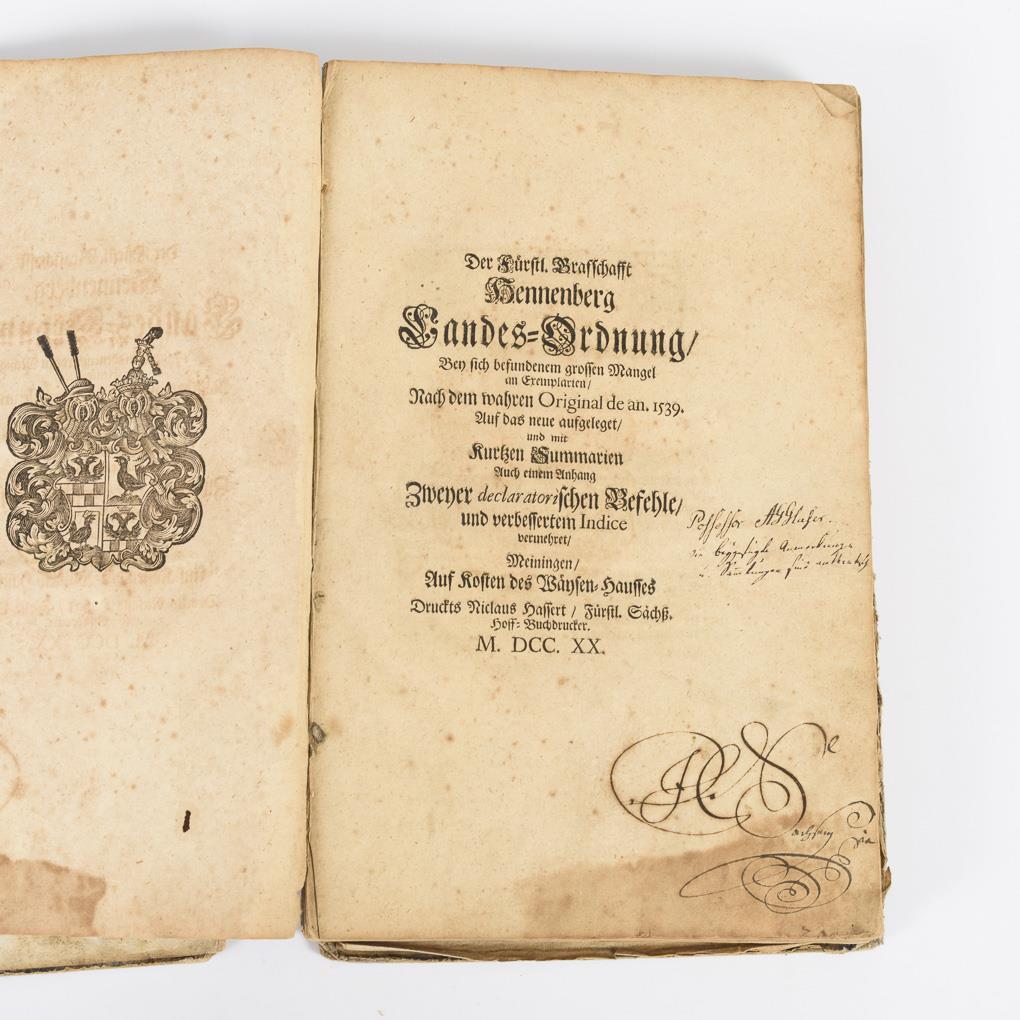 Der Fürstl. Graffschafft
Hennenberg
Landes-Ordnung/
Bey sich befundenem grossen Mangel
an Exemplarien/
Nach dem wahren Original de an. 1539.
Auf das neue aufgeleget/
und mit
Kurtzen Summarien
Auch einem Anhang
Zweyer declaratorischen Befehle/
und verbessertem Indice
vermehret/
Meiningen/
Auf Kosten des Wäysen-Hausses
Druckts Niclaus Hassert / Fürstl. Sächß.
Hoff-Buchdrucker.
M. DCC. XX.
Possessor